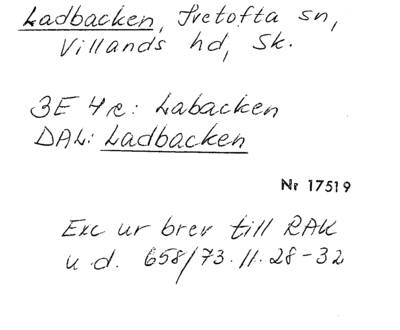 Ladbacken, Ivetofta sn,
Villands hd, Sk.
3E 4e: Labacken
DAL: Ladbacken
Nr 17519
Exc ur brev till RAK
u.d. 658/73.11.28-32